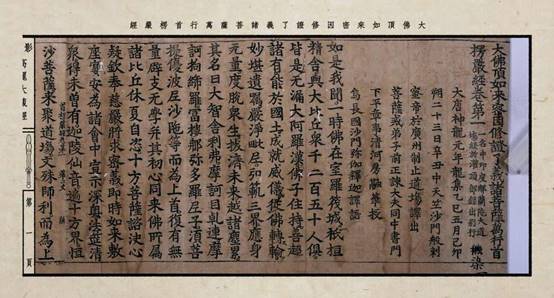 大佛頂如來密因修證了義諸菩薩萬行首楞嚴經
大佛頂如來密因修證了義諸菩薩萬行首
楞嚴經卷第一
大唐神龍元年龍集乙巳五月己卯
朔二十三日辛丑中天竺沙門般剌
蜜帝於廣州制止道場譯出
菩薩戒弟子前正諫大夫同中書門
下平章事清河房融筆授
烏長國沙門彌伽釋迦譯語
如是我聞一時佛在室羅筏城祇桓
精舍與大比丘眾千二百五十人俱
皆是無漏大阿羅漢佛子住持善超
諸有能於國土成就威儀從佛轉輪
妙堪遺囑嚴淨毗尼弘範三界應身
無量度脫眾生拔濟未來越諸塵累
其名曰大智舍利弗摩訶目乹連摩
訶拘絺羅富樓那彌多羅尼子須菩
提優波尼沙陁等而為上首復有無
量辟支無學并其初心同來佛所屬
諸比丘休夏自恣十方菩薩諮決心
疑欽奉慈嚴將求密義即時如來敷
座宴安為諸會中宣示深奧法筵清
眾得未曾有迦陵仙音遍十方界恒
沙菩薩來聚道場文殊師利而為上
第一頁